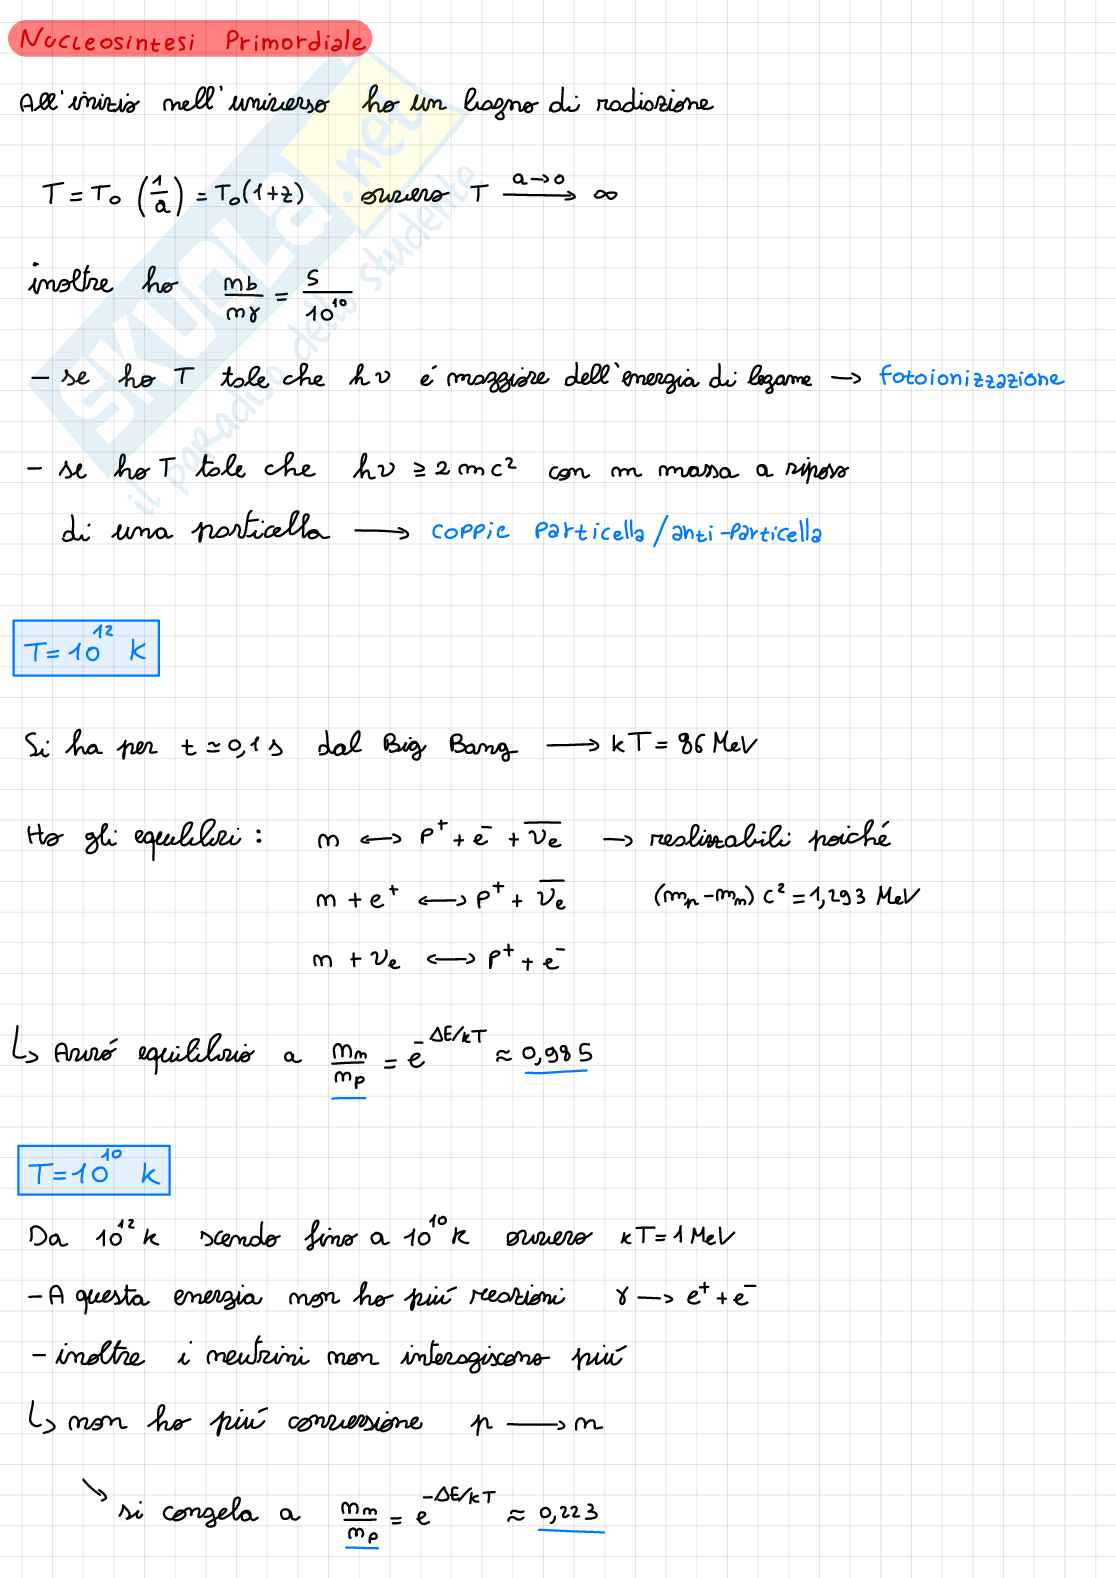 Nucleosintesi Primordiale
All'inizio nell'universo ho un bagno di radiazione
T = T₀ (1/a) = T₀(1+z) ovvero T —a→0→ ∞
inoltre ho nb/nγ = 5/10¹⁰
- se ho T tale che hν é maggiore dell'energia di legame → fotoionizzazione
- se ho T tale che hν ≥ 2mc² con m massa a riposo
di una particella → coppie particella/anti-particella
T = 10¹² K
Si ha per t ≃ 0,1 s dal Big Bang → kT = 86 MeV
Ho gli equilibri: n ↔ p⁺ + e⁻ + ν̅e → realizzabili poiché
n + e⁺ ↔ p⁺ + ν̅e (mp - mn) c² = 1,293 MeV
n + νe ↔ p⁺ + e⁻
↳ Avró equilibrio a nn/np = e^-ΔE/kT ≈ 0,985
T = 10¹⁰ K
Da 10¹² K scendo fino a 10¹⁰ K ovvero kT = 1 MeV
- A questa energia non ho piú reazioni γ → e⁺ + e⁻
- inoltre i neutrini non interagiscono piú
↳ non ho piú conversione p → n
↘ si congela a nn/np = e^-ΔE/kT ≈ 0,223
SKUOLA.net
il paradiso dello studente